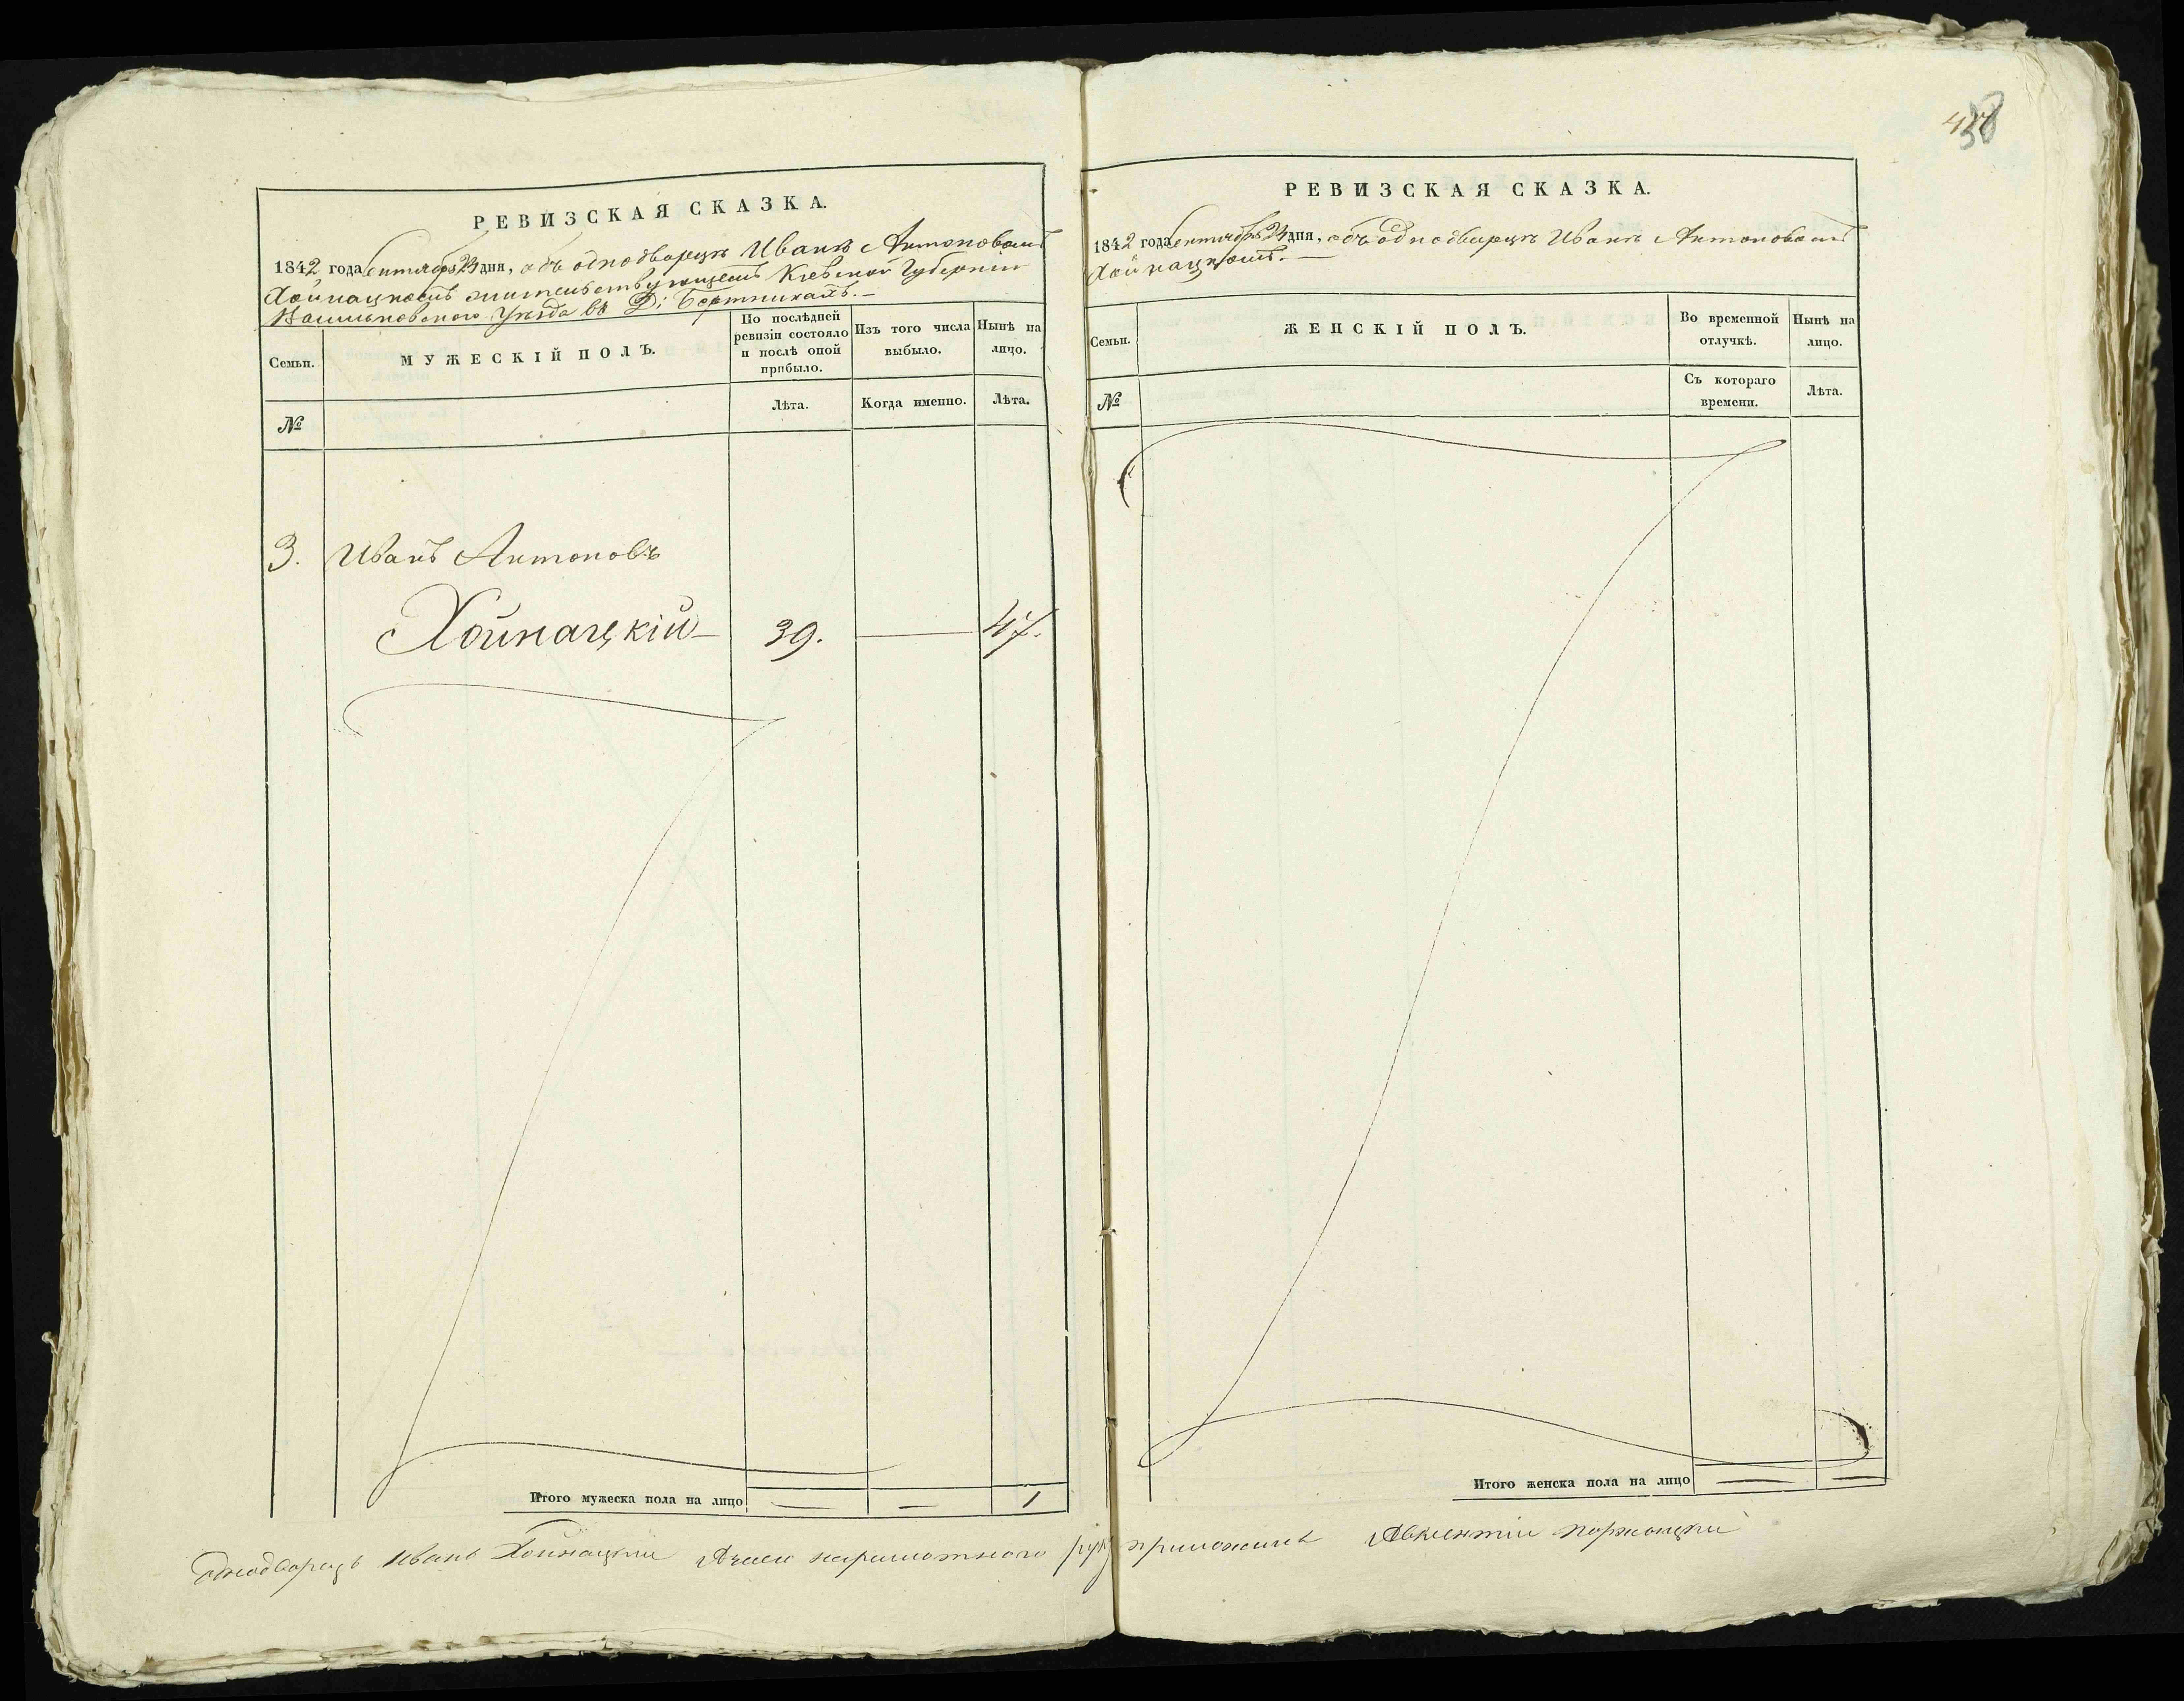 РЕВИЗСКАЯ СКАЗКА.
1842 года Сентября 24 дня, объ однодворцѣ Иванѣ Антоновомъ
Хойнацкомъ жительствующемъ Кіевской Губерніи
Васильковскаго Уѣзда въ Д: Бертникахъ.—
Семьи.
МУЖЕСКІЙ ПОЛЪ.
По послѣдней ревизіи состояло и послѣ оной прибыло.
Изъ того числа выбыло.
Нынѣ на лицо.
№
Лѣта.
Когда именно.
Лѣта.
3. Иванъ Антоновъ
Хойнацкій — 39. — 47.
Итого мужеска пола на лицо — — 1
438
РЕВИЗСКАЯ СКАЗКА.
1842 года Сентября 24 дня, объ однодворцѣ Иванѣ Антоновомъ
Хойнацкомъ.—
Семьи.
ЖЕНСКІЙ ПОЛЪ.
Во временной отлучкѣ.
Нынѣ на лицо.
№
Съ котораго времени.
Лѣта.
Итого женска пола на лицо — —
Однодворецъ Иванъ Хойнацкий неграмотного руку приложилъ